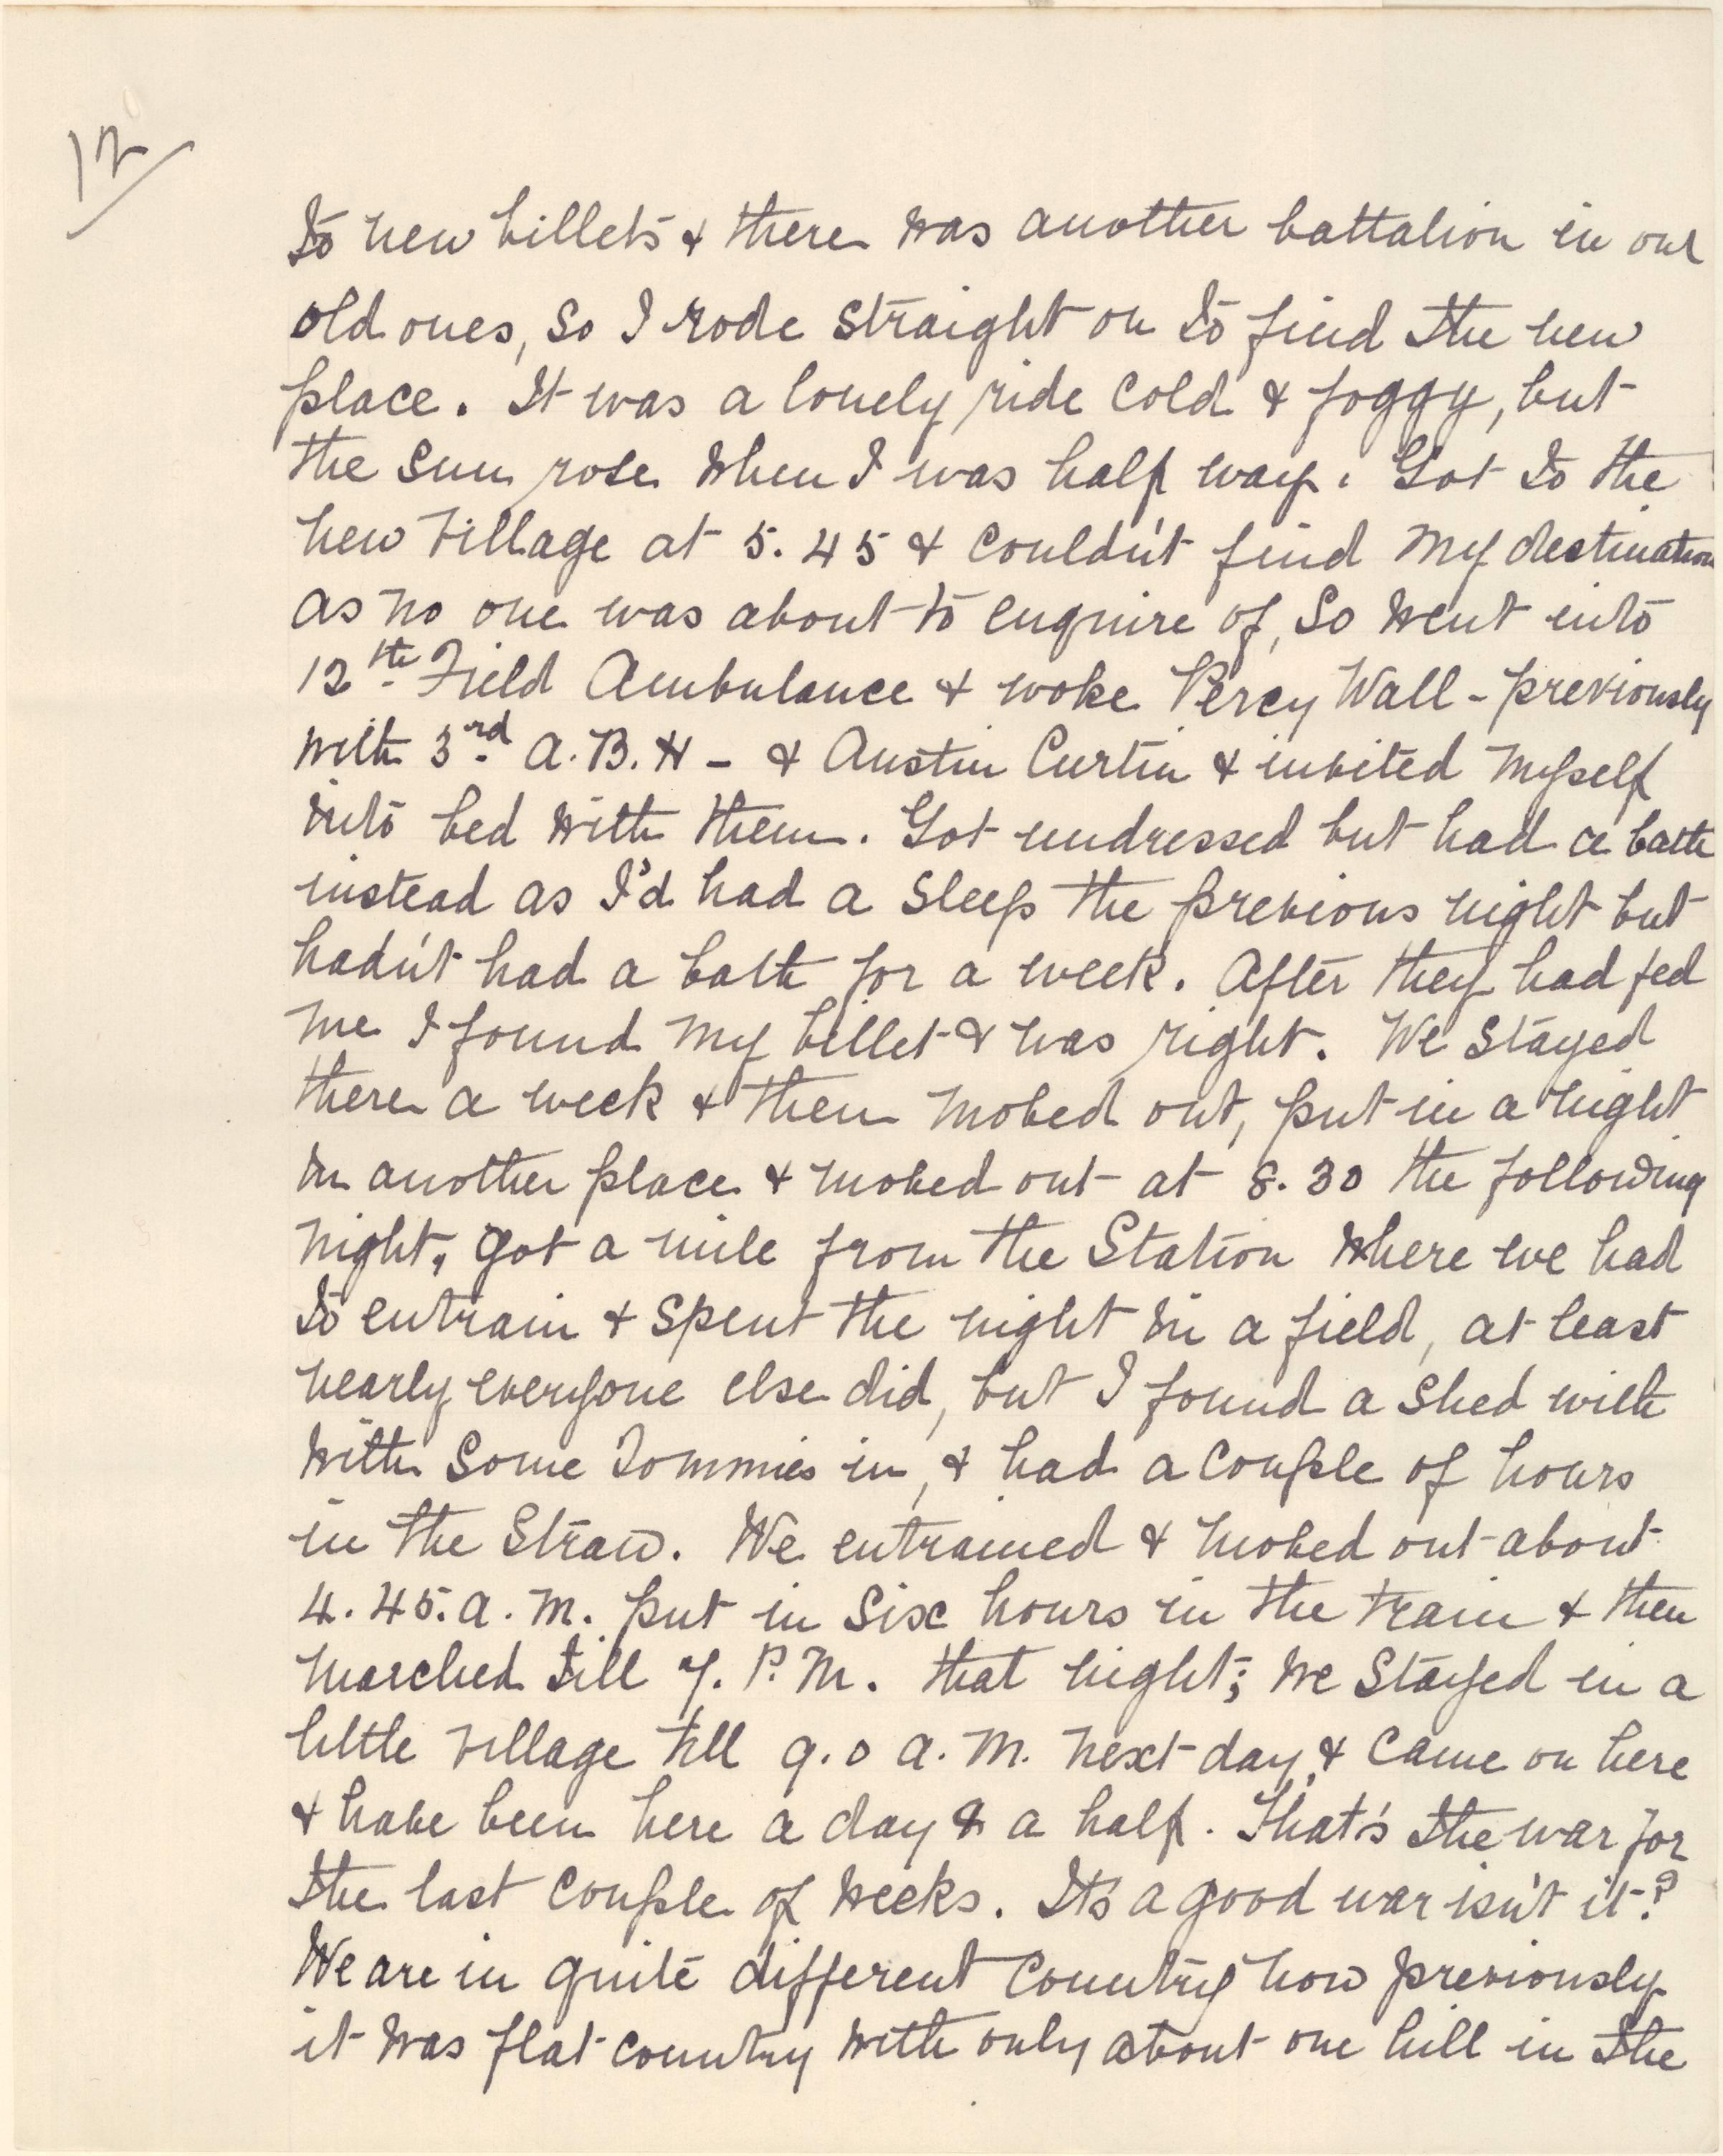 12/
to new billets & there was another battalion in our
old ones, so I rode straight on to find the new
place. It was a lonely ride cold & foggy, but
the sun rose when I was half way. Got to the
new village at 5.45 & couldn't find my destination
as no one was about to enquire of, so went into
12th Field Ambulance & woke Percy Wall - previously
with 3rd A.B.H - & Austin Curtin & invited myself
into bed with them. Got undressed but had a bath
instead as I'd had a sleep the previous night but
hadn't had a bath for a week. After they had fed
me I found my billet & was right. We stayed
there a week & then moved out, put in a night
in another place & moved out at 8.30 the following
night, got a mile from the Station where we had
to entrain & spent the night in a field, at least
nearly everyone else did, but I found a shed with
with some Tommies in, & had a couple of hours
in the straw. We entrained & moved out about
4.45.a.m. put in six hours in the train & then
marched till 7. P.M. that night; we stayed in a
little village till 9.0 a.m. next day, & came on here
& have been here a day & a half. That's the war for
the last couple of weeks. It's a good war isn't it?
We are in quite different country now previously
it was flat country with only about one hill in the